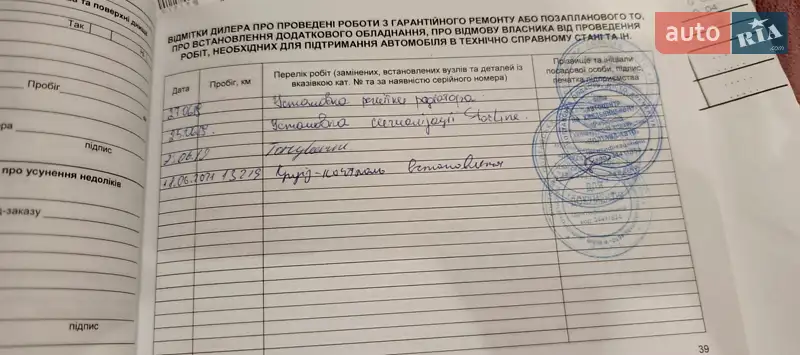 та поверхні днища
Так
Ні
Пробіг
підпис
про усунення недоліків
-заказу
підпис
ВІДМІТКИ ДИЛЕРА ПРО ПРОВЕДЕНІ РОБОТИ З ГАРАНТІЙНОГО РЕМОНТУ АБО ПОЗАПЛАНОВОГО ТО,
ПРО ВСТАНОВЛЕННЯ ДОДАТКОВОГО ОБЛАДНАННЯ, ПРО ВІДМОВУ ВЛАСНИКА ВІД ПРОВЕДЕННЯ
РОБІТ, НЕОБХІДНИХ ДЛЯ ПІДТРИМАННЯ АВТОМОБІЛЯ В ТЕХНІЧНО СПРАВНОМУ СТАНІ ТА ІН.
Дата
Пробіг, км
Перелік робіт (замінених, встановлених вузлів та деталей із
вказівкою кат. № та за наявністю серійного номера)
Прізвище та ініціали
посадової особи, підпис,
печатка підприємства
Установка решітки радіатора
Установка сигналізації Starline.
2.06.19 Тонування
11.06.2021 13219 Круїз-контроль встановлення
39
auto RIA.com